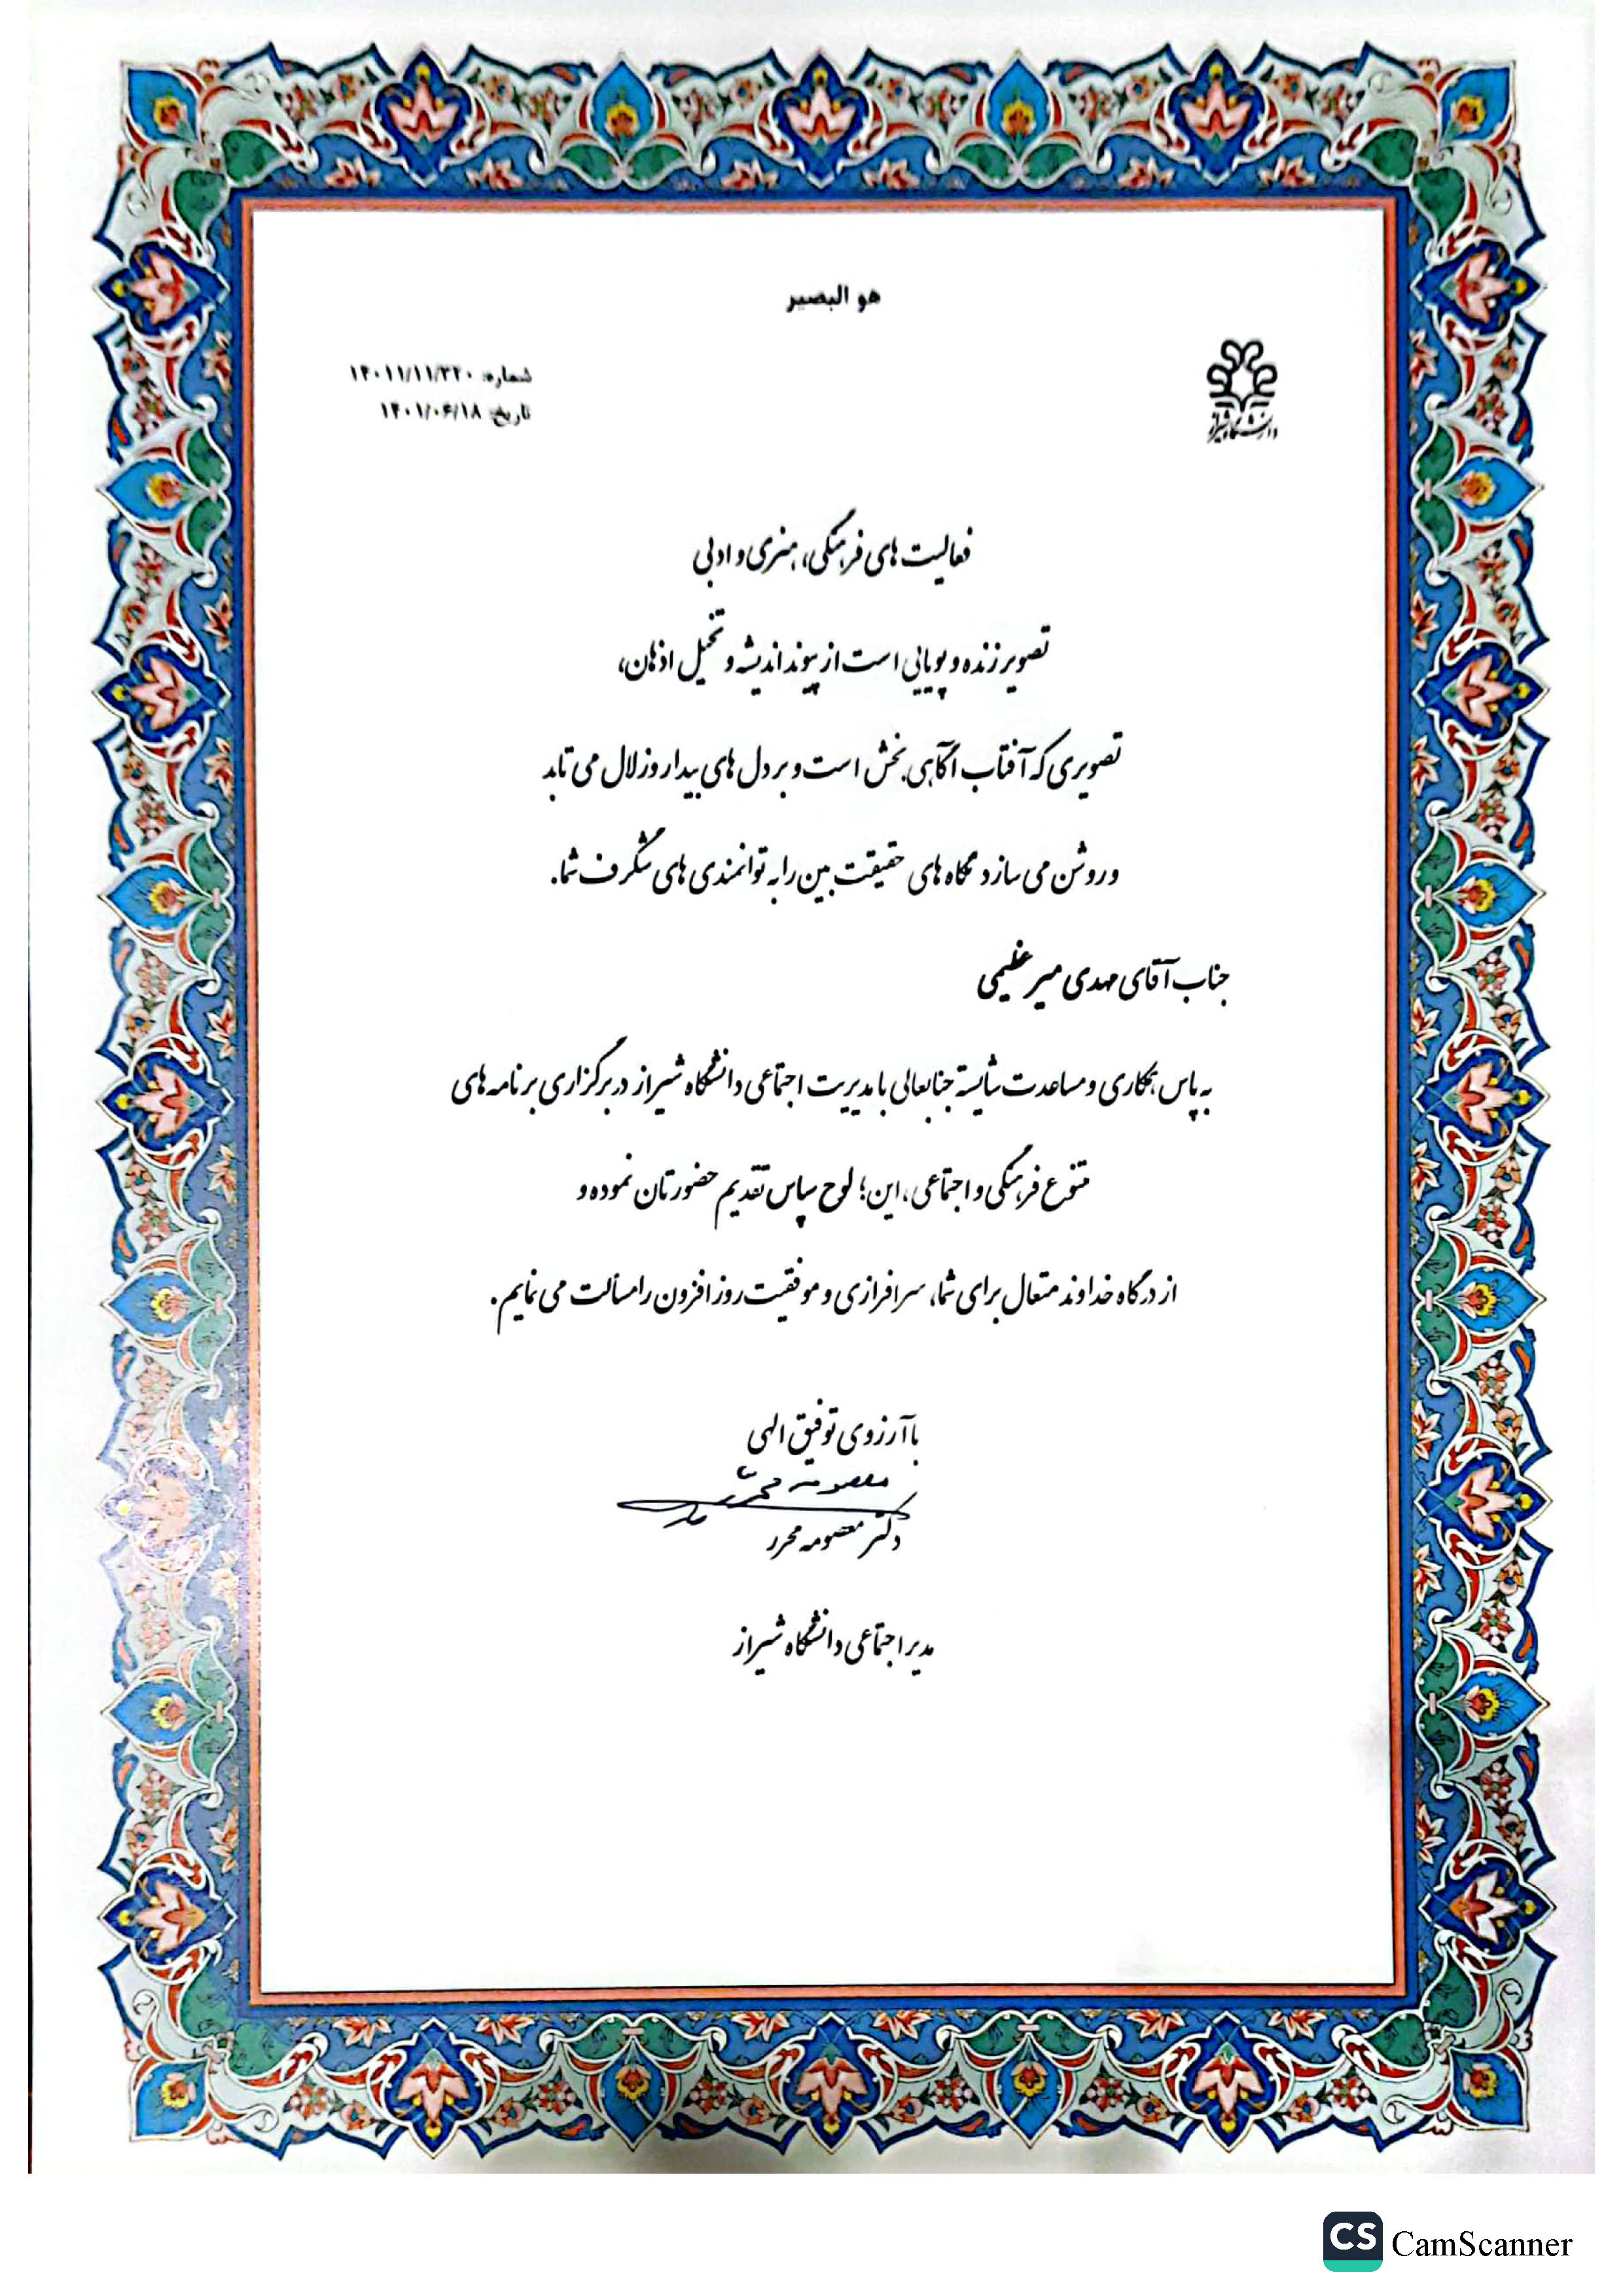 هو البصیر
دانشگاه شیراز
شماره: ۱۴۰۱۱/۱۱/۳۲۰
تاریخ: ۱۴۰۱/۰۶/۱۸
فعالیت های فرهنگی، هنری و ادبی
تصویر زنده و پویایی است از پیوند اندیشه و تخیل اذهان،
تصویری که آفتاب آگاهی بخش است و بر دل های بیدار و زلال می تابد
و روشن می سازد نگاه های حقیقت بین را به توانمندی های شگرف شما.
جناب آقای مهدی میر
به پاس همکاری و مساعدت شایسته جنابعالی با مدیریت اجتماعی دانشگاه شیراز در برگزاری برنامه های
متنوع فرهنگی و اجتماعی، این؛ لوح سپاس تقدیم حضورتان نموده و
از درگاه خداوند متعال برای شما، سرافرازی و موفقیت روز افزون را مسألت می نمایم.
با آرزوی توفیق الهی
معصومه محرر
دکتر معصومه محرر
مدیر اجتماعی دانشگاه شیراز
CS CamScanner